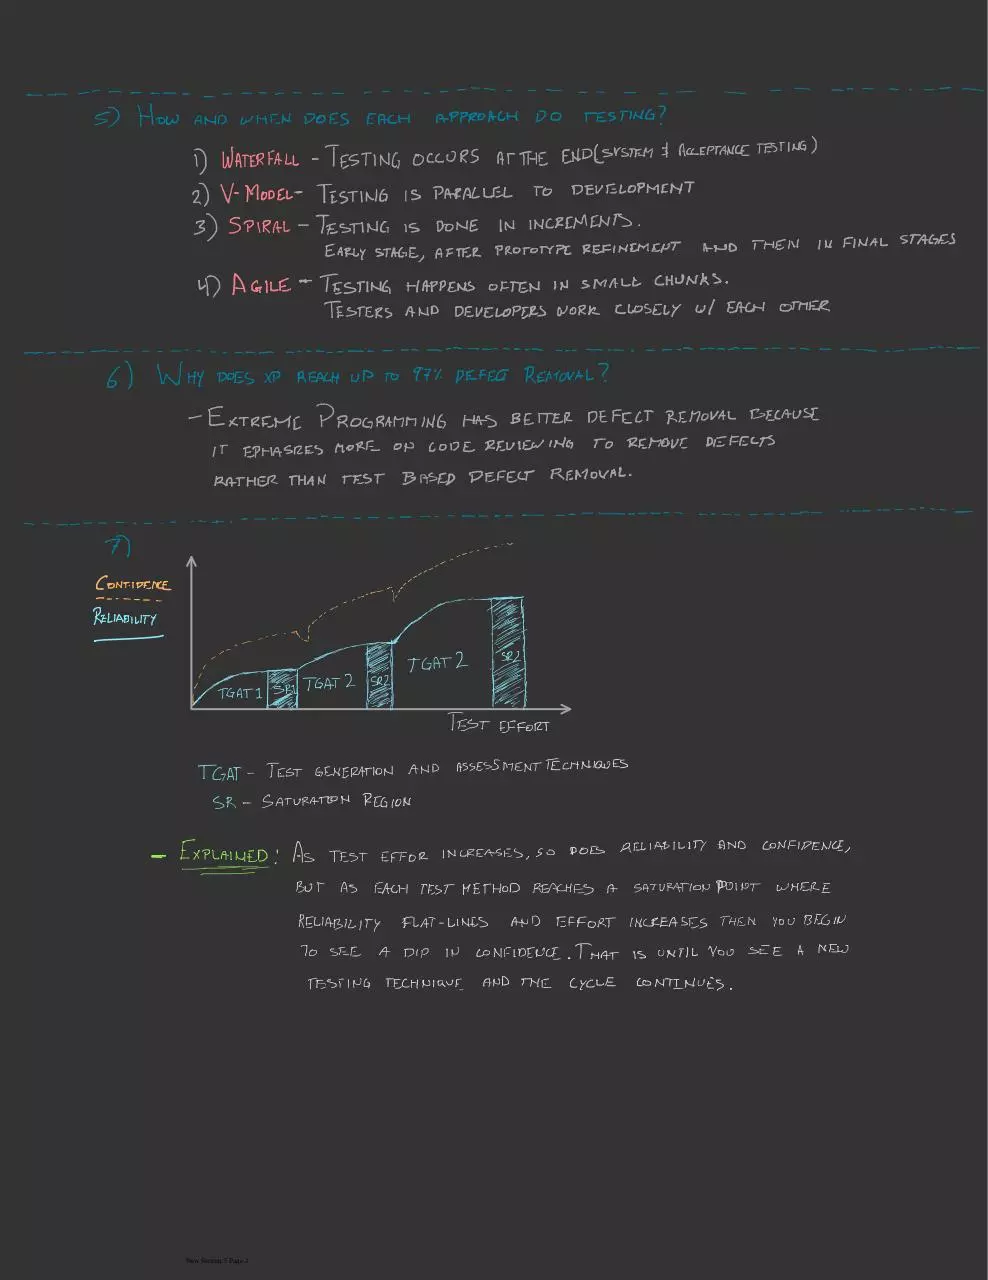 5) HOW AND WHEN DOES EACH APPROACH DO TESTING?
1) WATERFALL - TESTING OCCURS AT THE END (SYSTEM & ACCEPTANCE TESTING)
2) V-MODEL - TESTING IS PARALLEL TO DEVELOPMENT
3) SPIRAL - TESTING IS DONE IN INCREMENTS.
EARLY STAGE, AFTER PROTOTYPE REFINEMENT AND THEN IN FINAL STAGES
4) AGILE - TESTING HAPPENS OFTEN IN SMALL CHUNKS.
TESTERS AND DEVELOPERS WORK CLOSELY W/ EACH OTHER
6) WHY DOES XP REACH UP TO 97% DEFECT REMOVAL?
- EXTREME PROGRAMMING HAS BETTER DEFECT REMOVAL BECAUSE
IT EPHASIZES MORE ON CODE REVIEWING TO REMOVE DEFECTS
RATHER THAN TEST BASED DEFECT REMOVAL.
7)
CONFIDENCE
RELIABILITY
TGAT 1 SR1 TGAT 2 SR2 TGAT 2 SR2
TEST EFFORT
TGAT - TEST GENERATION AND ASSESSMENT TECHNIQUES
SR - SATURATION REGION
- EXPLAINED: AS TEST EFFOR INCREASES, SO DOES RELIABILITY AND CONFIDENCE,
BUT AS EACH TEST METHOD REACHES A SATURATION POINT WHERE
RELIABILITY FLAT-LINES AND EFFORT INCREASES THEN YOU BEGIN
TO SEE A DIP IN CONFIDENCE. THAT IS UNTIL YOU SEE A NEW
TESTING TECHNIQUE AND THE CYCLE CONTINUES.